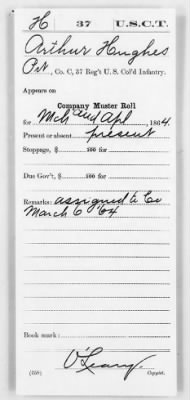 H 37 U.S.C.T.
Arthur Hughes
Pvt, Co. C, 37 Reg't U. S. Col'd Infantry.
Appears on
Company Muster Roll
for Mch and Apl, 1864.
Present or absent present
Stoppage, $ 100 for
Due Gov't, $ 100 for
Remarks: assigned to Co
March 6 '64
Book mark:
O'Leary.
(358) Copyist.